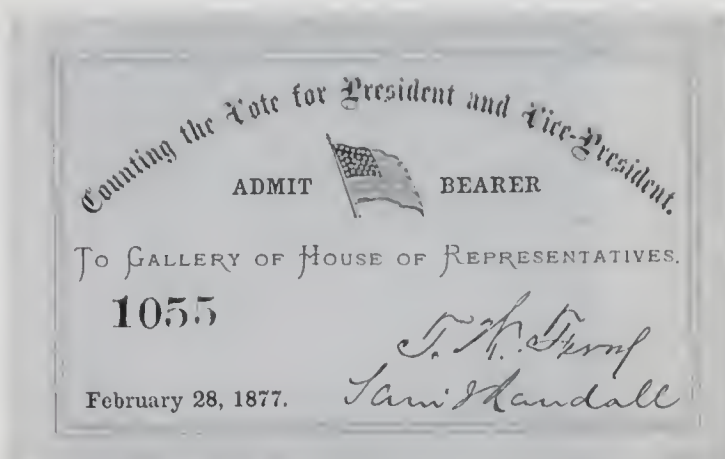 Counting the Vote for President and Vice-President.
ADMIT BEARER
TO GALLERY OF HOUSE OF REPRESENTATIVES.
1055
T. W. Ferry
February 28, 1877.
Sam J Randall